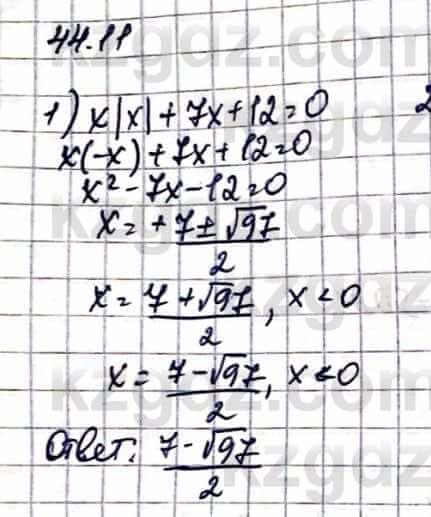 44.11
1) x|x| + 7x + 12 = 0
x(-x) + 7x + 12 = 0
x² - 7x - 12 = 0
x = + 7 ± √97 / 2
x = 7 + √97 / 2, x < 0
x = 7 - √97 / 2, x < 0
Ответ: 7 - √97 / 2